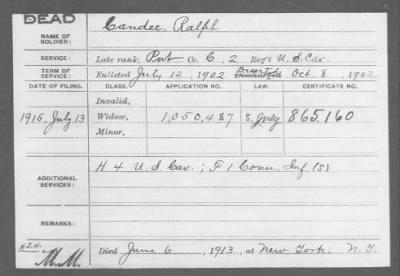 DEAD
NAME OF SOLDIER: Candee, Ralph
SERVICE: Late rank, Pvt Co. C, 2 Reg't U.S. Cav.
TERM OF SERVICE: Enlisted July 12, 1902 Deserted Oct. 8, 1902
DATE OF FILING. CLASS. APPLICATION NO. LAW. CERTIFICATE NO.
Invalid,
1915, July 13 Widow, 1,050,487 865,160
Minor,
ADDITIONAL SERVICES: H 4 U.S. Cav.; F 1 Conn. Inf (S)
REMARKS:
N.J.H.
M.M. Died June 6, 1913, at New York, N.Y.